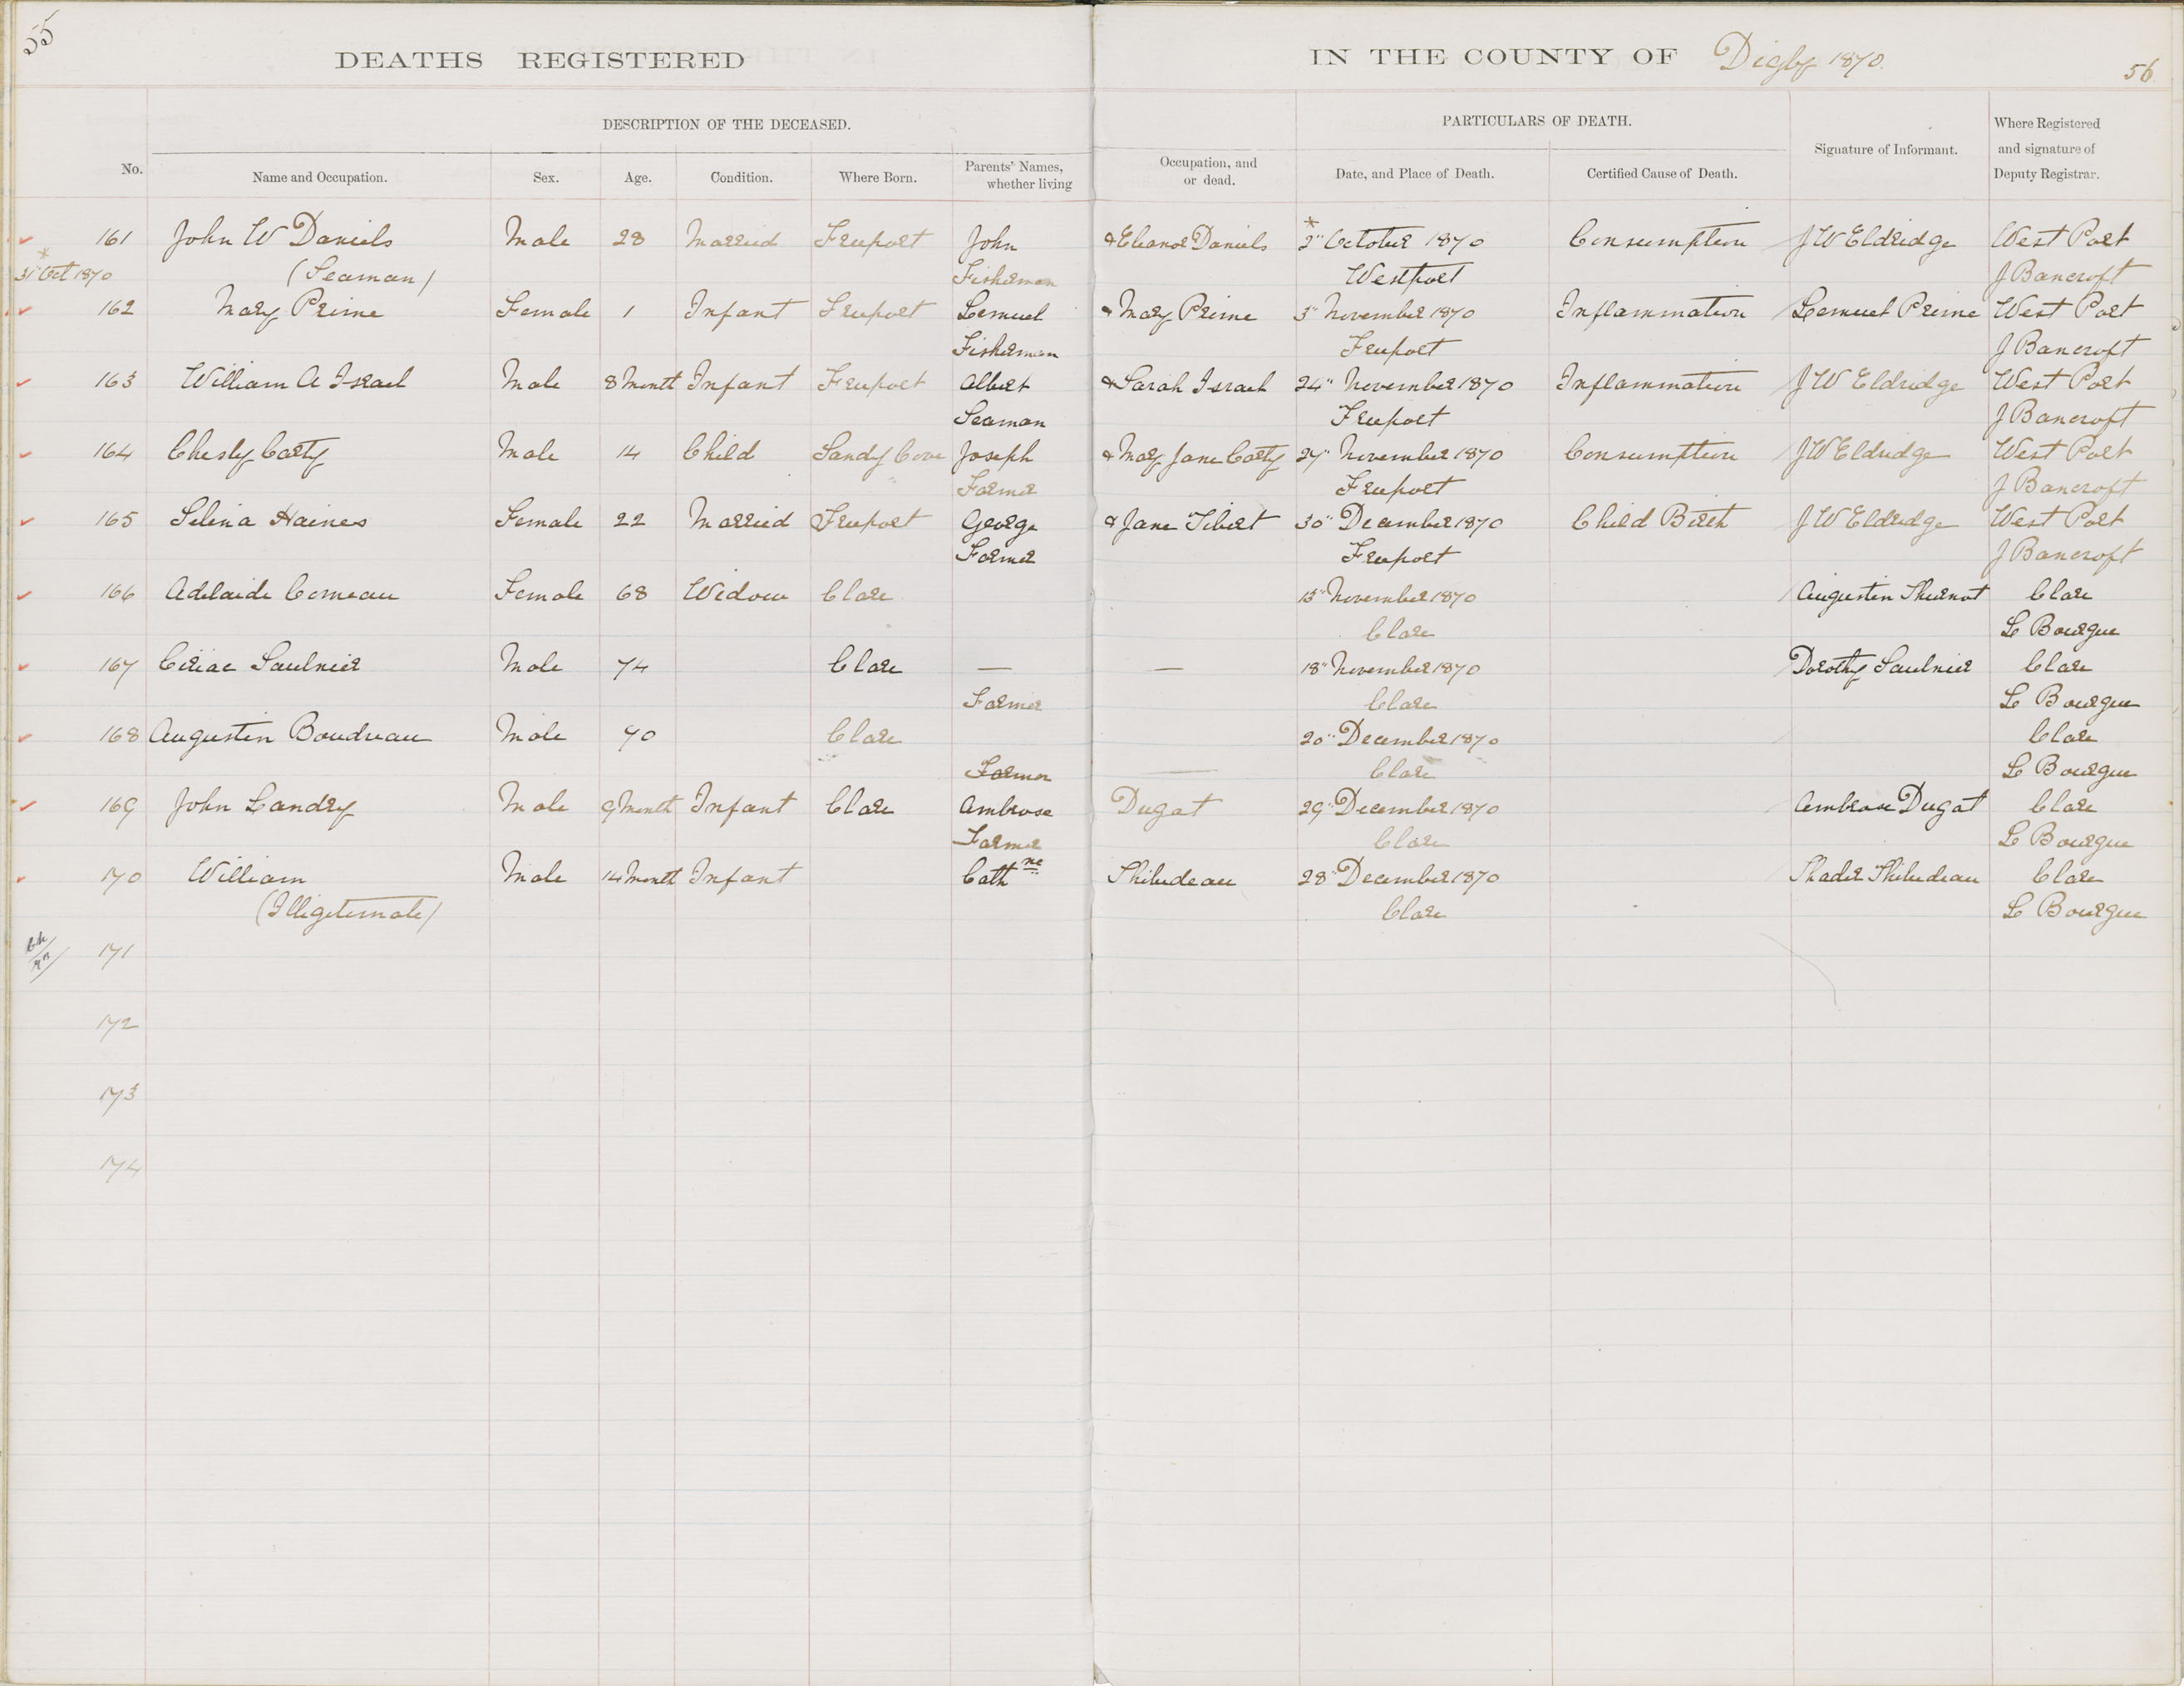 55
DEATHS REGISTERED IN THE COUNTY OF Digby 1870.
56
DESCRIPTION OF THE DECEASED.
PARTICULARS OF DEATH.
No. Name and Occupation. Sex. Age. Condition. Where Born. Parents' Names, whether living Occupation, and or dead. Date, and Place of Death. Certified Cause of Death. Signature of Informant. Where Registered and signature of Deputy Registrar.
161 John W Daniels Male 28 Married Freeport John & Eleanor Daniels * 2" October 1870 Consumption J W Eldridge West Port
* 31" Oct 1870 (Seaman) Fisherman Westport J Bancroft
162 Mary Prime Female 1 Infant Freeport Lemuel & Mary Prime 3" November 1870 Inflammation Lemuel Prime West Port
Fisherman Freeport J Bancroft
163 William A Israel Male 8 Month Infant Freeport Albert & Sarah Israel 24" November 1870 Inflammation J W Eldridge West Port
Seaman Freeport J Bancroft
164 Chesly Carty Male 14 Child Sandy Cove Joseph & Mary Jane Carty 27" November 1870 Consumption J W Eldridge West Port
Farmer Freeport J Bancroft
165 Selina Haines Female 22 Married Freeport George & Jane Tibert 30" December 1870 Child Birth J W Eldridge West Port
Farmer Freeport J Bancroft
166 Adelaide Comeau Female 68 Widow Clare 13" November 1870 Augustin Clare
Clare L Bourque
167 Ciriac Saulnier Male 74 Clare — — 18" November 1870 Dorothy Saulnier Clare
Farmer Clare L Bourque
168 Augustin Boudreau Male 70 Clare 20" December 1870 Clare
Farmer — Clare L Bourque
169 John Landry Male 9 Month Infant Clare Ambrose Dugat 29" December 1870 Ambrose Dugat Clare
Farmer Clare L Bourque
170 William Male 14 Month Infant Cathne Thibudeau 28" December 1870 Thibudeau Clare
(Illigetemate) Clare L Bourque
171
172
173
174